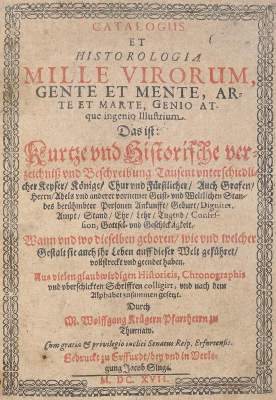 CATALOGUS
ET
HISTOROLOGIA
MILLE VIRORUM,
GENTE ET MENTE, AR-
TE ET MARTE, GENIO AT-
que ingenio Illustrium.
Das ist:
Kurtze vnd Historische ver-
zeichniß vnd Beschreibung Tausent vnterschiedli-
cher Keyser / Könige / Chur vnd Fürstlicher / Auch Grafen /
Herrn / Adels vnd anderer vornemer Geist- vnd Weltlichen Stan-
des berühmbter Personen Ankunfft / Geburt / Digniter,
Ampt / Stand / Ehr / Lehr / Tugend / Confes-
sion, Gottesf- vnd Geschicklgkeit.
Wann vnd wo dieselben geboren / wie vnd welcher
Gestalt sie auch jhr Leben auff dieser Welt geführet /
vollstreckt vnd geendet haben.
Aus vielen glaubwirdigen Historicis, Chronographis
vnd vberschickten Schrifften colligirt, vnd nach dem
Alphabet zusammen gesetzt.
Durch
M. Wolffgang Krügern Pfarrherrn zu
Thurnaw.
Cum gratia & privilegio inclyti Senatus Reip. Erfurtensis.
Gedruckt zu Erffurdt / bey vnd in Verle-
gung Jacob Singe.
M. DC. XVII.